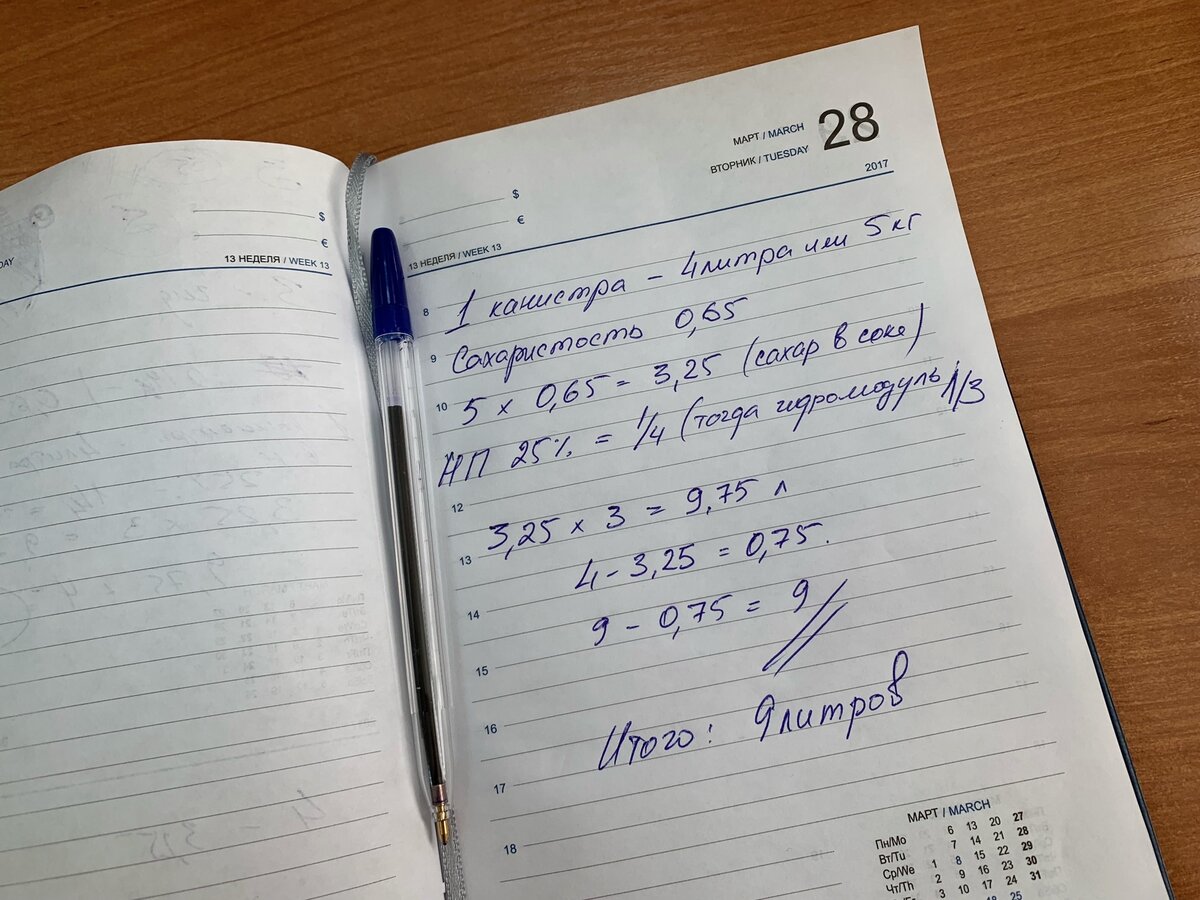 DAY
$
€
13 НЕДЕЛЯ / WEEK 13
МАРТ / MARCH 28
ВТОРНИК / TUESDAY
2017
$
€
13 НЕДЕЛЯ / WEEK 13
8 1 канистра - 4 литра или 5 кг
9 Сахаристость 0,65
10 5 х 0,65 = 3,25 (сахар в соке)
НП 25% = 1/4 (тогда гидромодуль 1/3
12
13 3,25 х 3 = 9,75 л
4 - 3,25 = 0,75.
14
9 - 0,75 = 9
15
16
Итого: 9 литров
17
18
МАРТ / MARCH
Пн/Mo 6 13 20 27
Вт/Tu 7 14 21 28
Ср/We 1 8 15 22 29
Чт/Th 2 9 16 23 30
3 10 17 24 31
18 25